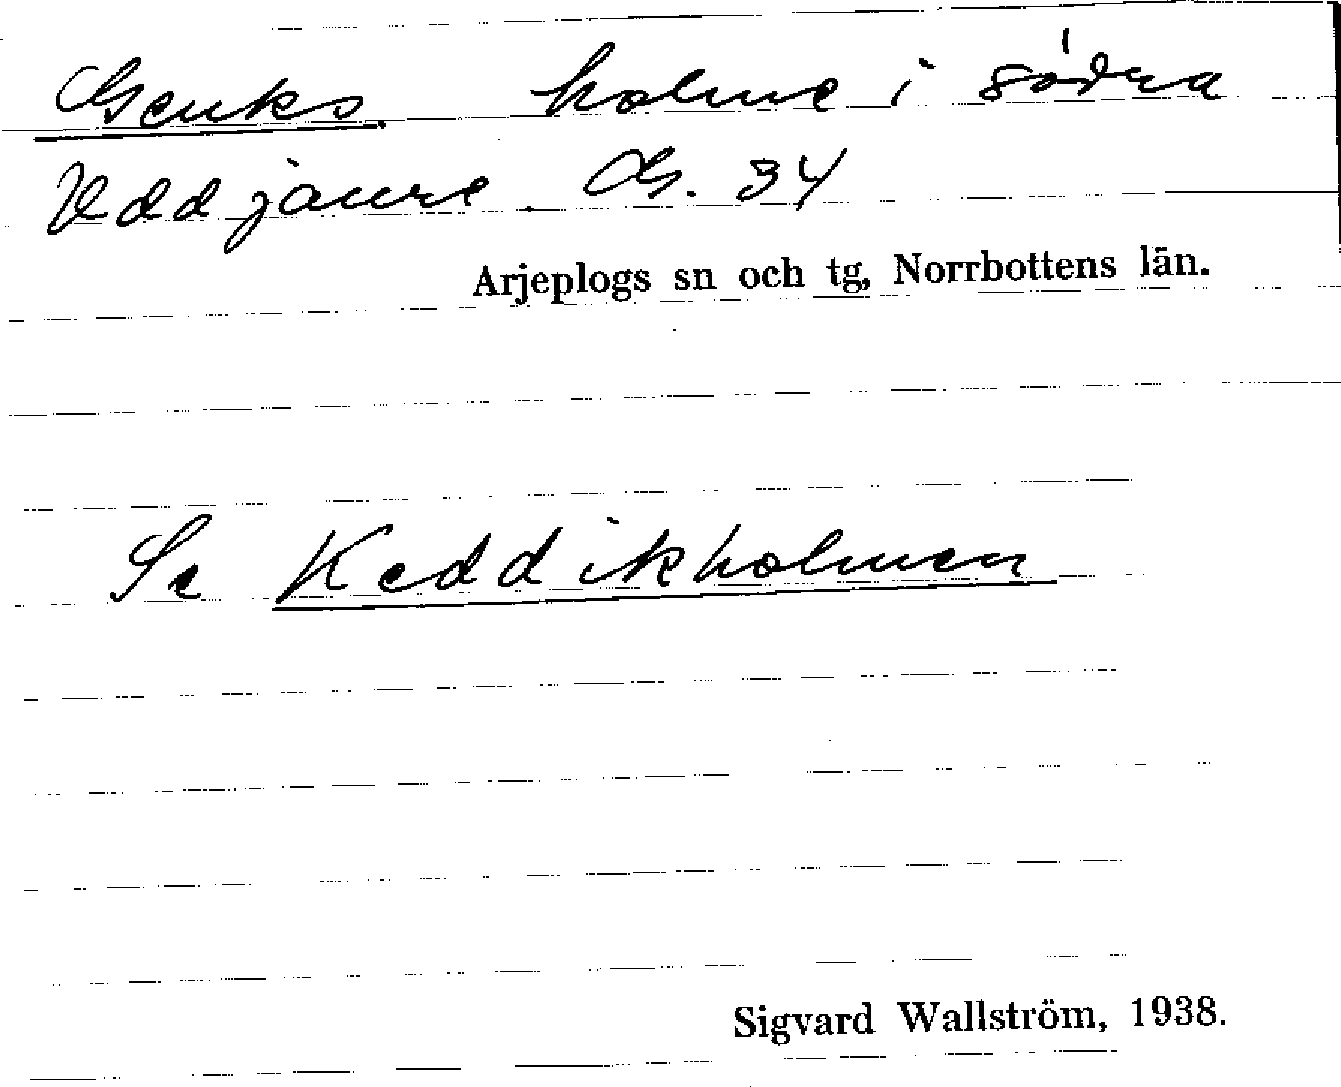 Genks holme i södra
Uddjaure G. 34
Arjeplogs sn och tg, Norrbottens län.
Se Keddikholmen
Sigvard Wallström, 1938.